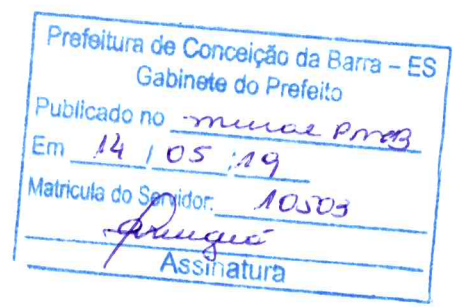 Prefeitura de Conceição da Barra – ES
Gabinete do Prefeito
Publicado no mural PMCB
Em 14 / 05 / 19
Matricula do Servidor: 10503
Assinatura